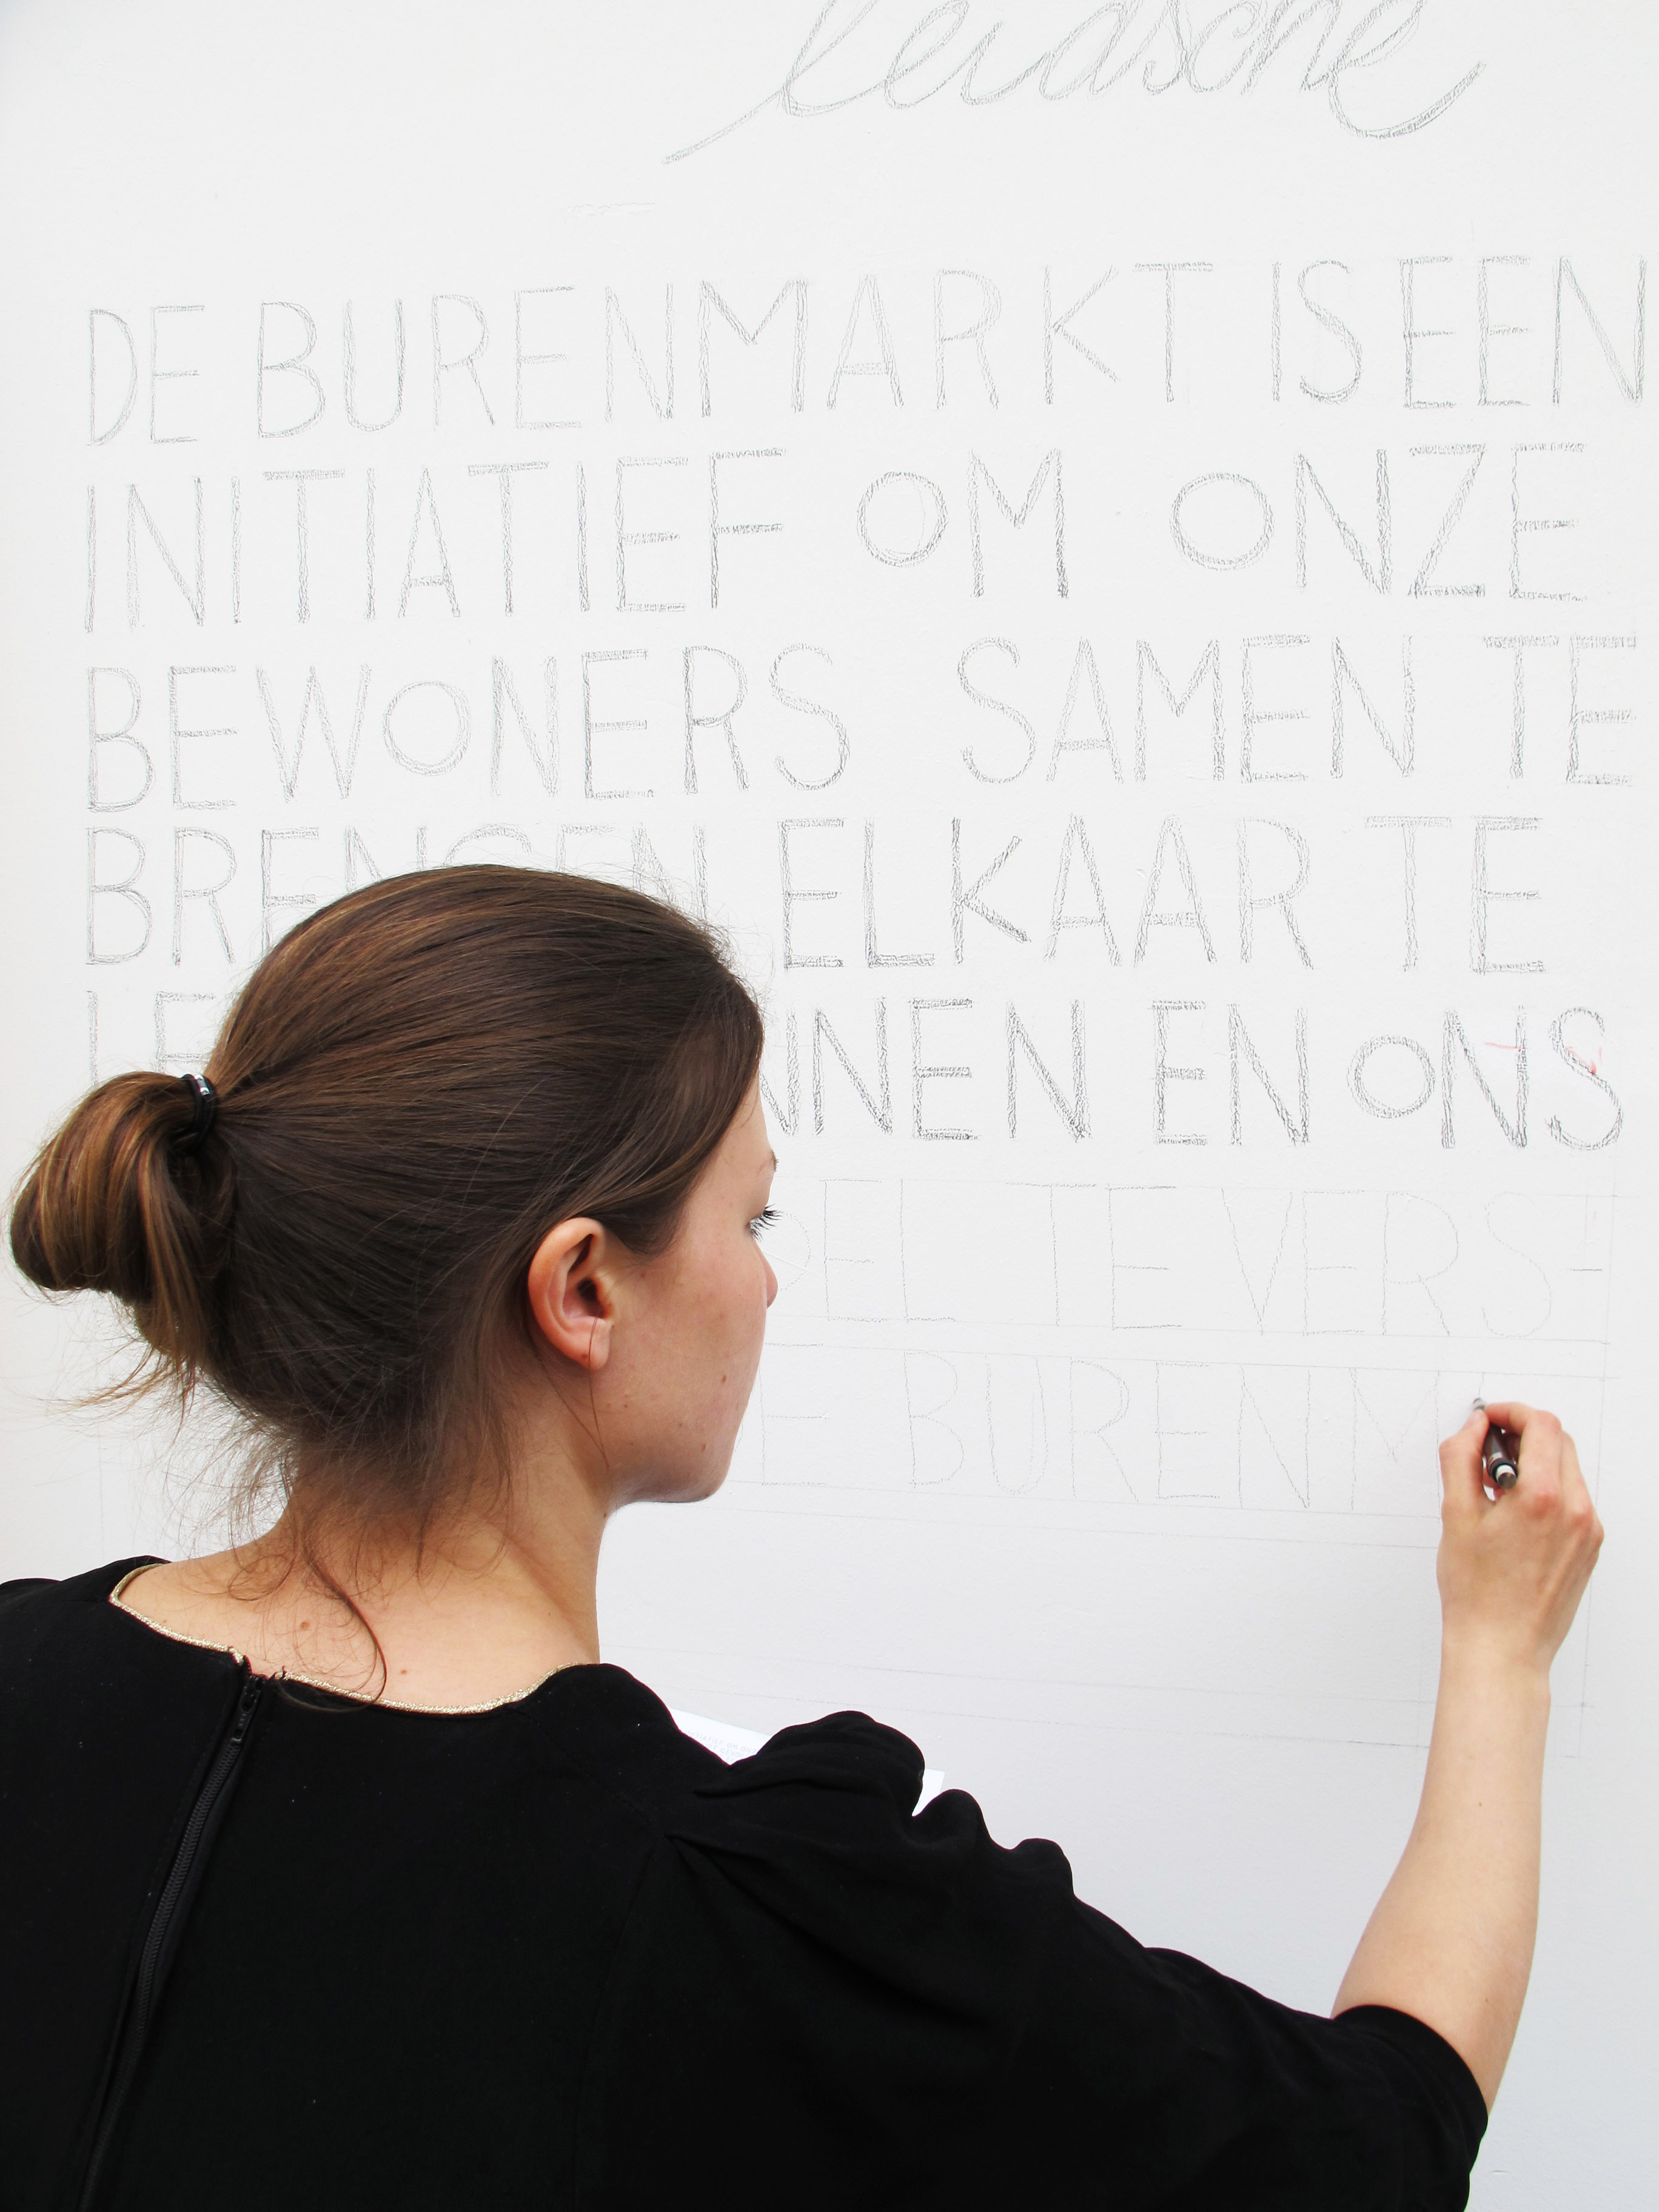 leidsche
DE BURENMARKT IS EEN
INITIATIEF OM ONZE
BEWONERS SAMEN TE
BRENGEN ELKAAR TE
EN ONS
TE VERS-
BURENM